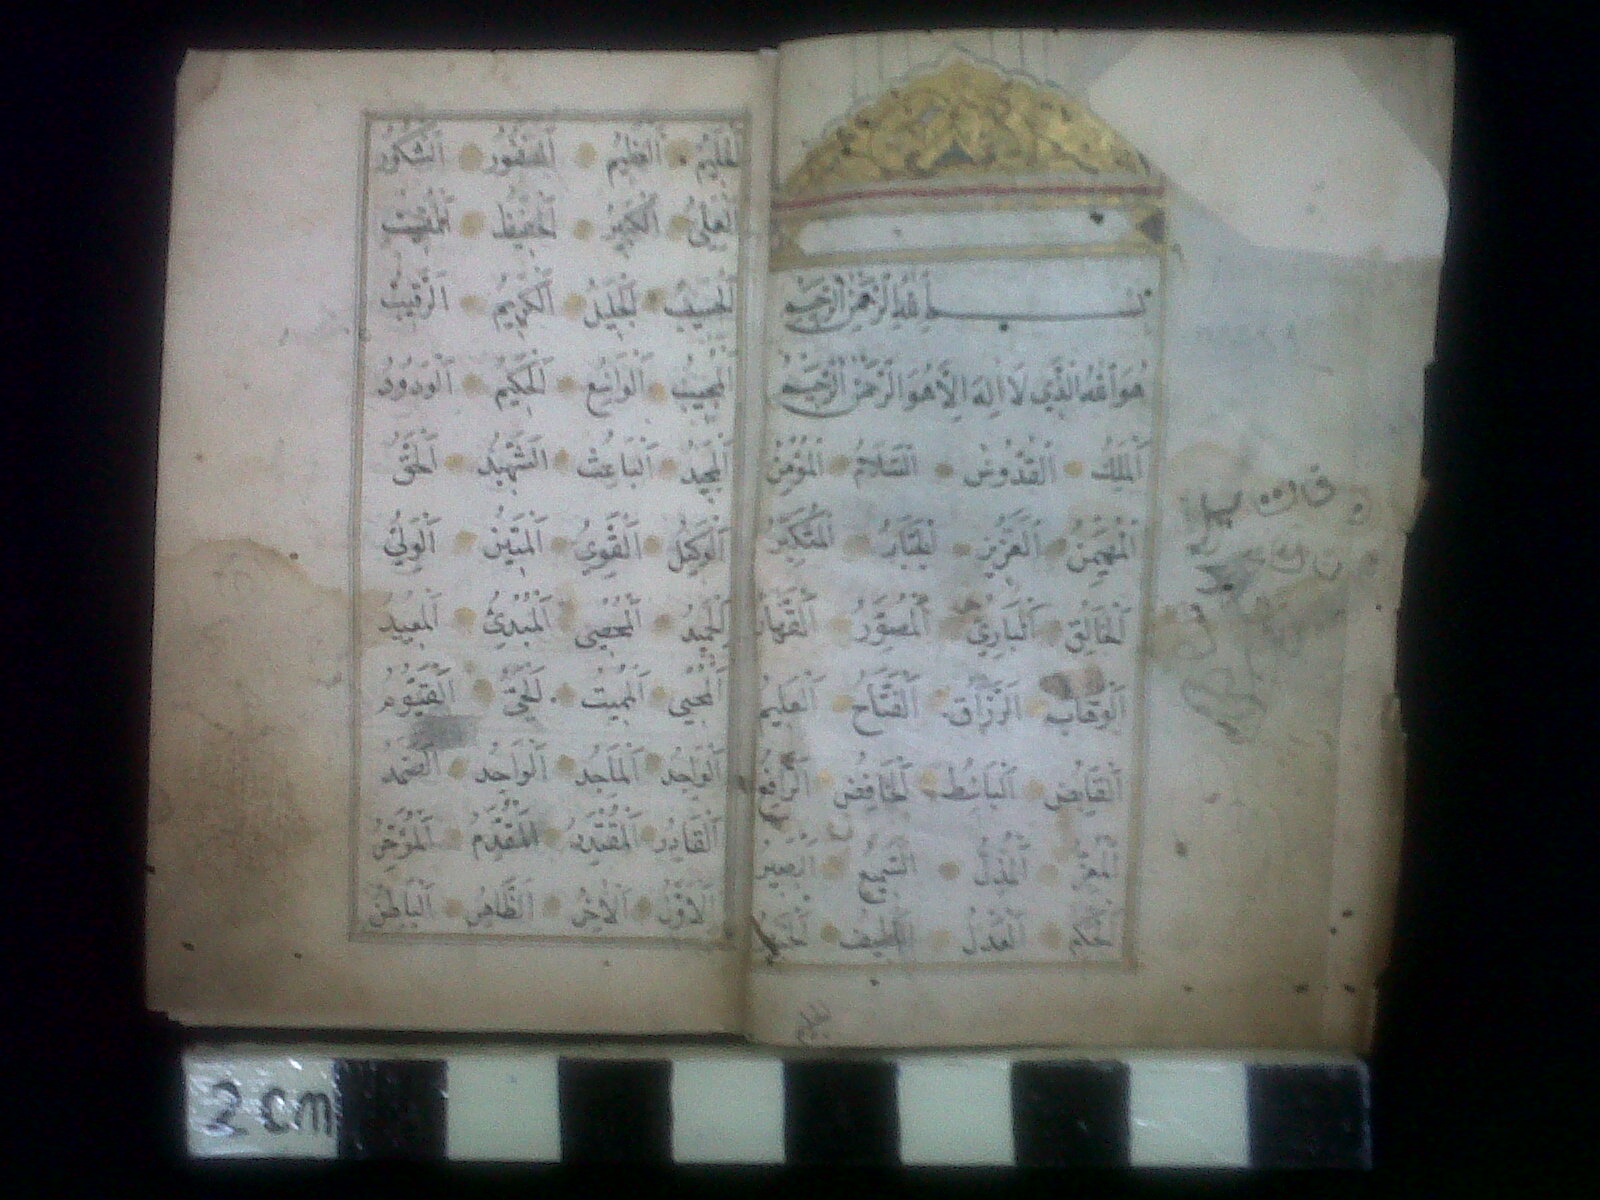 بسم الله الرحمن الرحيم
هُوَ اللهُ الَّذِي لَا اِلٰهَ اِلَّا هُوَ الرَّحْمٰنُ الرَّحِيمُ
اَلْمَلِكُ اَلْقُدُّوسُ اَلسَّلَامُ اَلْمُؤْمِنُ
اَلْمُهَيْمِنُ اَلْعَزِيزُ اَلْجَبَّارُ اَلْمُتَكَبِّرُ
اَلْخَالِقُ اَلْبَارِئُ اَلْمُصَوِّرُ اَلْقَهَّارُ
اَلْوَهَّابُ اَلرَّزَّاقُ اَلْفَتَّاحُ اَلْعَلِيمُ
اَلْقَابِضُ اَلْبَاسِطُ اَلْخَافِضُ اَلرَّافِعُ
اَلْمُعِزُّ اَلْمُذِلُّ اَلسَّمِيعُ اَلْبَصِيرُ
اَلْحَكَمُ اَلْعَدْلُ اَللَّطِيفُ
اَلْحَلِيمُ اَلْعَظِيمُ اَلْغَفُورُ اَلشَّكُورُ
اَلْعَلِيُّ اَلْكَبِيرُ اَلْحَفِيظُ اَلْمُقِيتُ
اَلْحَسِيبُ اَلْجَلِيلُ اَلْكَرِيمُ اَلرَّقِيبُ
اَلْمُجِيبُ اَلْوَاسِعُ اَلْحَكِيمُ اَلْوَدُودُ
اَلْمَجِيدُ اَلْبَاعِثُ اَلشَّهِيدُ اَلْحَقُّ
اَلْوَكِيلُ اَلْقَوِيُّ اَلْمَتِينُ اَلْوَلِيُّ
اَلْحَمِيدُ اَلْمُحْصِي اَلْمُبْدِئُ اَلْمُعِيدُ
اَلْمُحْيِي اَلْمُمِيتُ اَلْحَيُّ اَلْقَيُّومُ
اَلْوَاجِدُ اَلْمَاجِدُ اَلْوَاحِدُ اَلصَّمَدُ
اَلْقَادِرُ اَلْمُقْتَدِرُ اَلْمُقَدِّمُ اَلْمُؤَخِّرُ
اَلْاَوَّلُ اَلْاٰخِرُ اَلظَّاهِرُ اَلْبَاطِنُ
2 cm